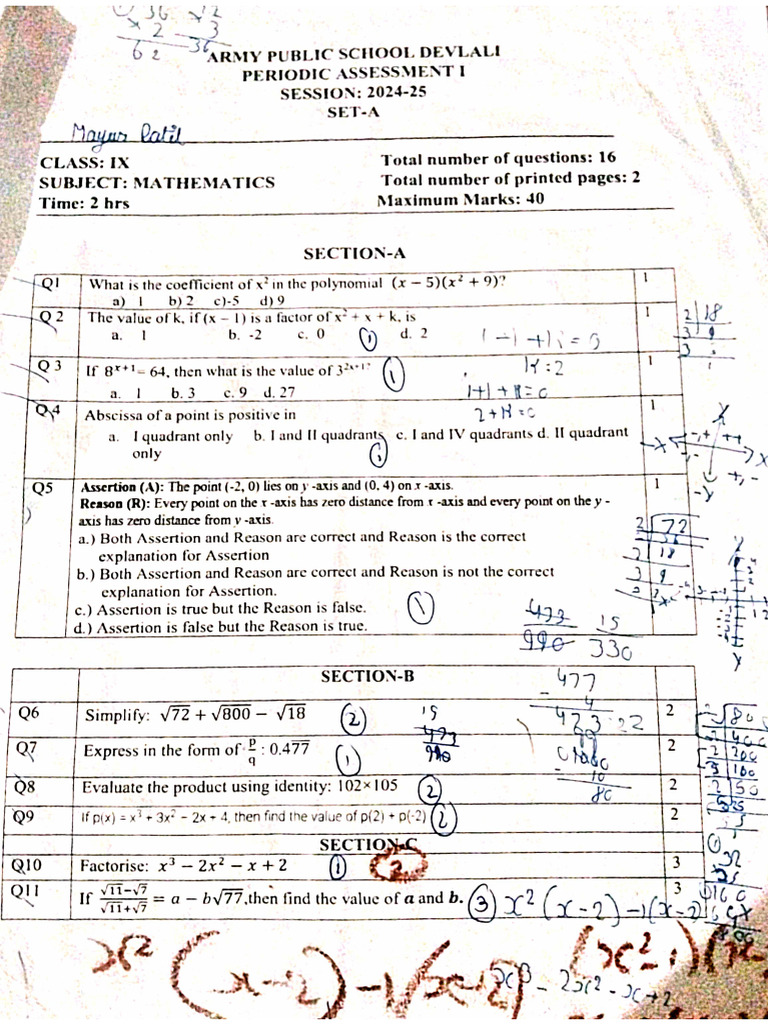 36 12
× 2 - 3
62 36
ARMY PUBLIC SCHOOL DEVLALI
PERIODIC ASSESSMENT I
SESSION: 2024-25
SET-A
Mayur Patil
CLASS: IX Total number of questions: 16
SUBJECT: MATHEMATICS Total number of printed pages: 2
Time: 2 hrs Maximum Marks: 40
SECTION-A
Q1 What is the coefficient of x² in the polynomial (x − 5)(x² + 9)? 1
a) 1 b) 2 c)-5 d) 9
Q 2 The value of k, if (x – 1) is a factor of x² + x + k, is 1
a. 1 b. -2 c. 0 d. 2 1
Q 3 If 8ˣ⁺¹ = 64, then what is the value of 3²ˣ⁺¹? 1
a. 1 b. 3 c. 9 d. 27 1
1+1+K=0
2+K=0
Q.4 Abscissa of a point is positive in 1
a. I quadrant only b. I and II quadrants c. I and IV quadrants d. II quadrant
only 1
Q5 Assertion (A): The point (-2, 0) lies on y -axis and (0, 4) on x -axis. 1
Reason (R): Every point on the x -axis has zero distance from x -axis and every point on the y -
axis has zero distance from y -axis.
a.) Both Assertion and Reason are correct and Reason is the correct
explanation for Assertion
b.) Both Assertion and Reason are correct and Reason is not the correct
explanation for Assertion.
c.) Assertion is true but the Reason is false. 1
d.) Assertion is false but the Reason is true.
473 15
990 330
SECTION-B
477
- 4
473
Q6 Simplify: √72 + √800 − √18 2 2
Q7 Express in the form of p/q : 0.477̅ 1 2
Q8 Evaluate the product using identity: 102×105 2 2
Q9 If p(x) = x³ + 3x² – 2x + 4, then find the value of p(2) + p(-2) 2 2
SECTION-C
Q10 Factorise: x³ − 2x² − x + 2 1 2 3
Q11 If (√11−√7)/(√11+√7) = a − b√77, then find the value of a and b. 3 3
x²(x-2)-1(x-2)
x² (x-2)-1(x-2) (x²-1)
x³-2x²-x+2